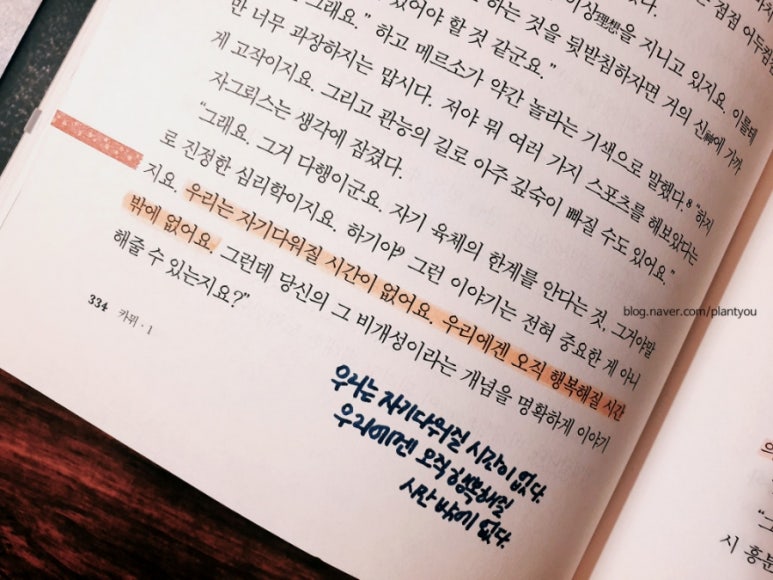 는 점점 어두컴컴
이상理想을 지니고 있지요. 이를테
하는 것을 뒷받침하자면 거의 신神에 가까
있어야 할 것 같군요."
그래요." 하고 메르소가 약간 놀라는 기색으로 말했다.8 "하지
만 너무 과장하지는 맙시다. 저야 뭐 여러 가지 스포츠를 해보았다는
게 고작이지요. 그리고 관능의 길로 아주 깊숙이 빠질 수도 있어요."
자그리스는 생각에 잠겼다.
"그래요. 그거 다행이군요. 자기 육체의 한계를 안다는 것, 그거야말
로 진정한 심리학이지요. 하기야9 그런 이야기는 전혀 중요한 게 아니
지요. 우리는 자기다워질 시간이 없어요. 우리에겐 오직 행복해질 시간
밖에 없어요. 그런데 당신의 그 비개성이라는 개념을 명확하게 이야기
해줄 수 있는지요?"
334 카뮈 · 1
우리는 자기다워질 시간이 없다.
우리에겐 오직 행복해질
시간 밖에 없다.
blog.naver.com/plantyou
시 흥분